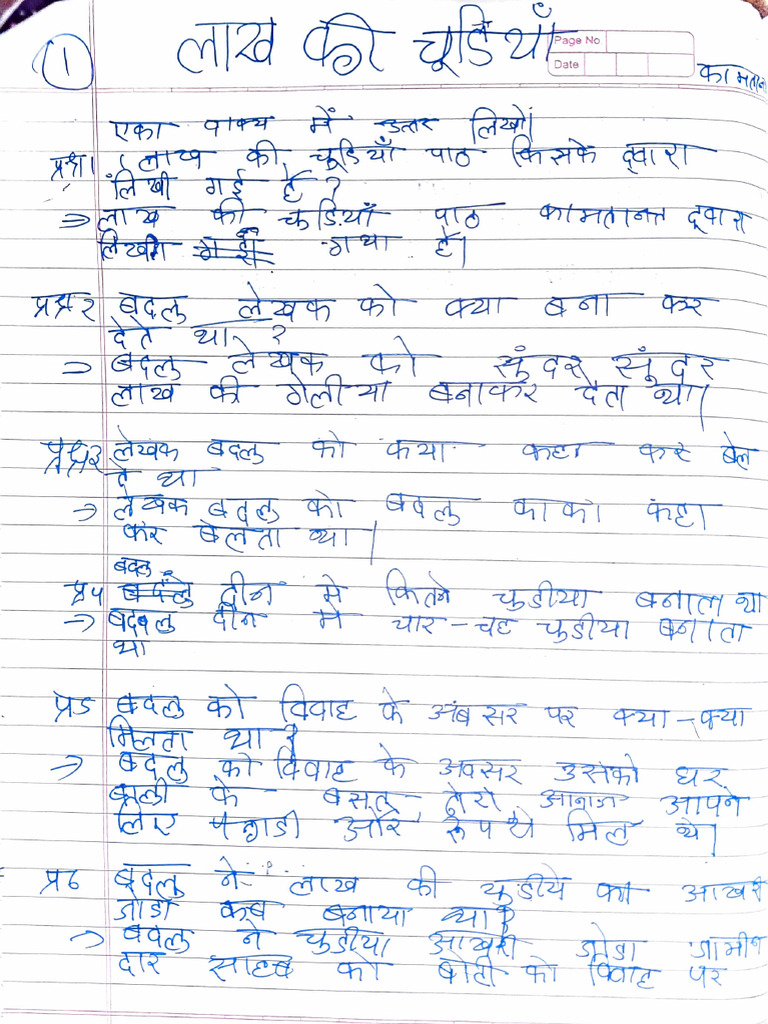 1
लाख की चूडियाँ
Page No
Date
एका वाक्य में उत्तर लिखो।
प्रश्न1 लाख की चूडियाँ पाठ किसके द्वारा
लिखी गई है ?
⇒ लाख की चुडियाँ पाठ कामतानत द्वारा
लिखी गया है।
प्रश्न २ बदलु लेखक को क्या बना कर
देते था ?
⇒ बदलु लेखक को सुंदर सुंदर
लाख की गेलीया बनाकर देता था।
प्रश्न३ लेखक बदलु को कया कहा कर बेल
ते था
→ लेखक बदलु को बदलु काका कहा
कर बेलता था।
बदलु
प्र४ दीन मे कितने चुडीया बनाता था
→ बदलु दीन मे चार-चह चुडीया बनाता
था
प्र5 बदलु को विवाह के अबसर पर क्या-क्या
मिलता था ?
→ बदलु को विवाह के अवसर उसको घर
वाली के आपने
लिए पगाडी और रूपये मिल थे।
प्र6 बदलु ने लाख की चुडीये का आखरी
जोडा कब बनाया था ?
→ बदलु ने चुडीया आखरी जोडा जामीन
दार साहब को बेटी को विवाह पर